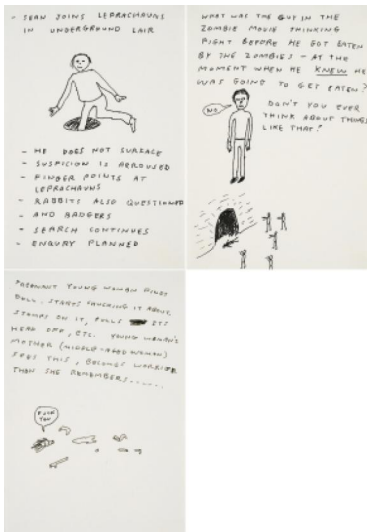 - SEAN JOINS LEPRACHAUNS
IN UNDERGROUND LAIR
- HE DOES NOT SURFACE
- SUSPICION IS AEROUSED
- FINGER POINTS AT
LEPRACHAUNS
- RABBITS ALSO QUESTIONED
- AND BADGERS
- SEARCH CONTINUES
- ENQURY PLANNED
WHAT WAS THE GUY IN THE
ZOMBIE MOVIE THINKING
RIGHT BEFORE HE GOT EATEN
BY THE ZOMBIES - AT THE
MOMENT WHEN HE KNEW HE
WAS GOING TO GET EATEN?
NO.
DON'T YOU EVER
THINK ABOUT THINGS
LIKE THAT?
PREGNANT YOUNG WOMAN FINDS
DOLL. STARTS CHUCKING IT ABOUT,
STAMPS ON IT, PULLS ITS
HEAD OFF, ETC. YOUNG WOMAN'S
MOTHER (MIDDLE-AGED WOMAN)
SEES THIS, BECOMES WORRIED
THAN SHE REMEMBERS......
FUCK
YOU